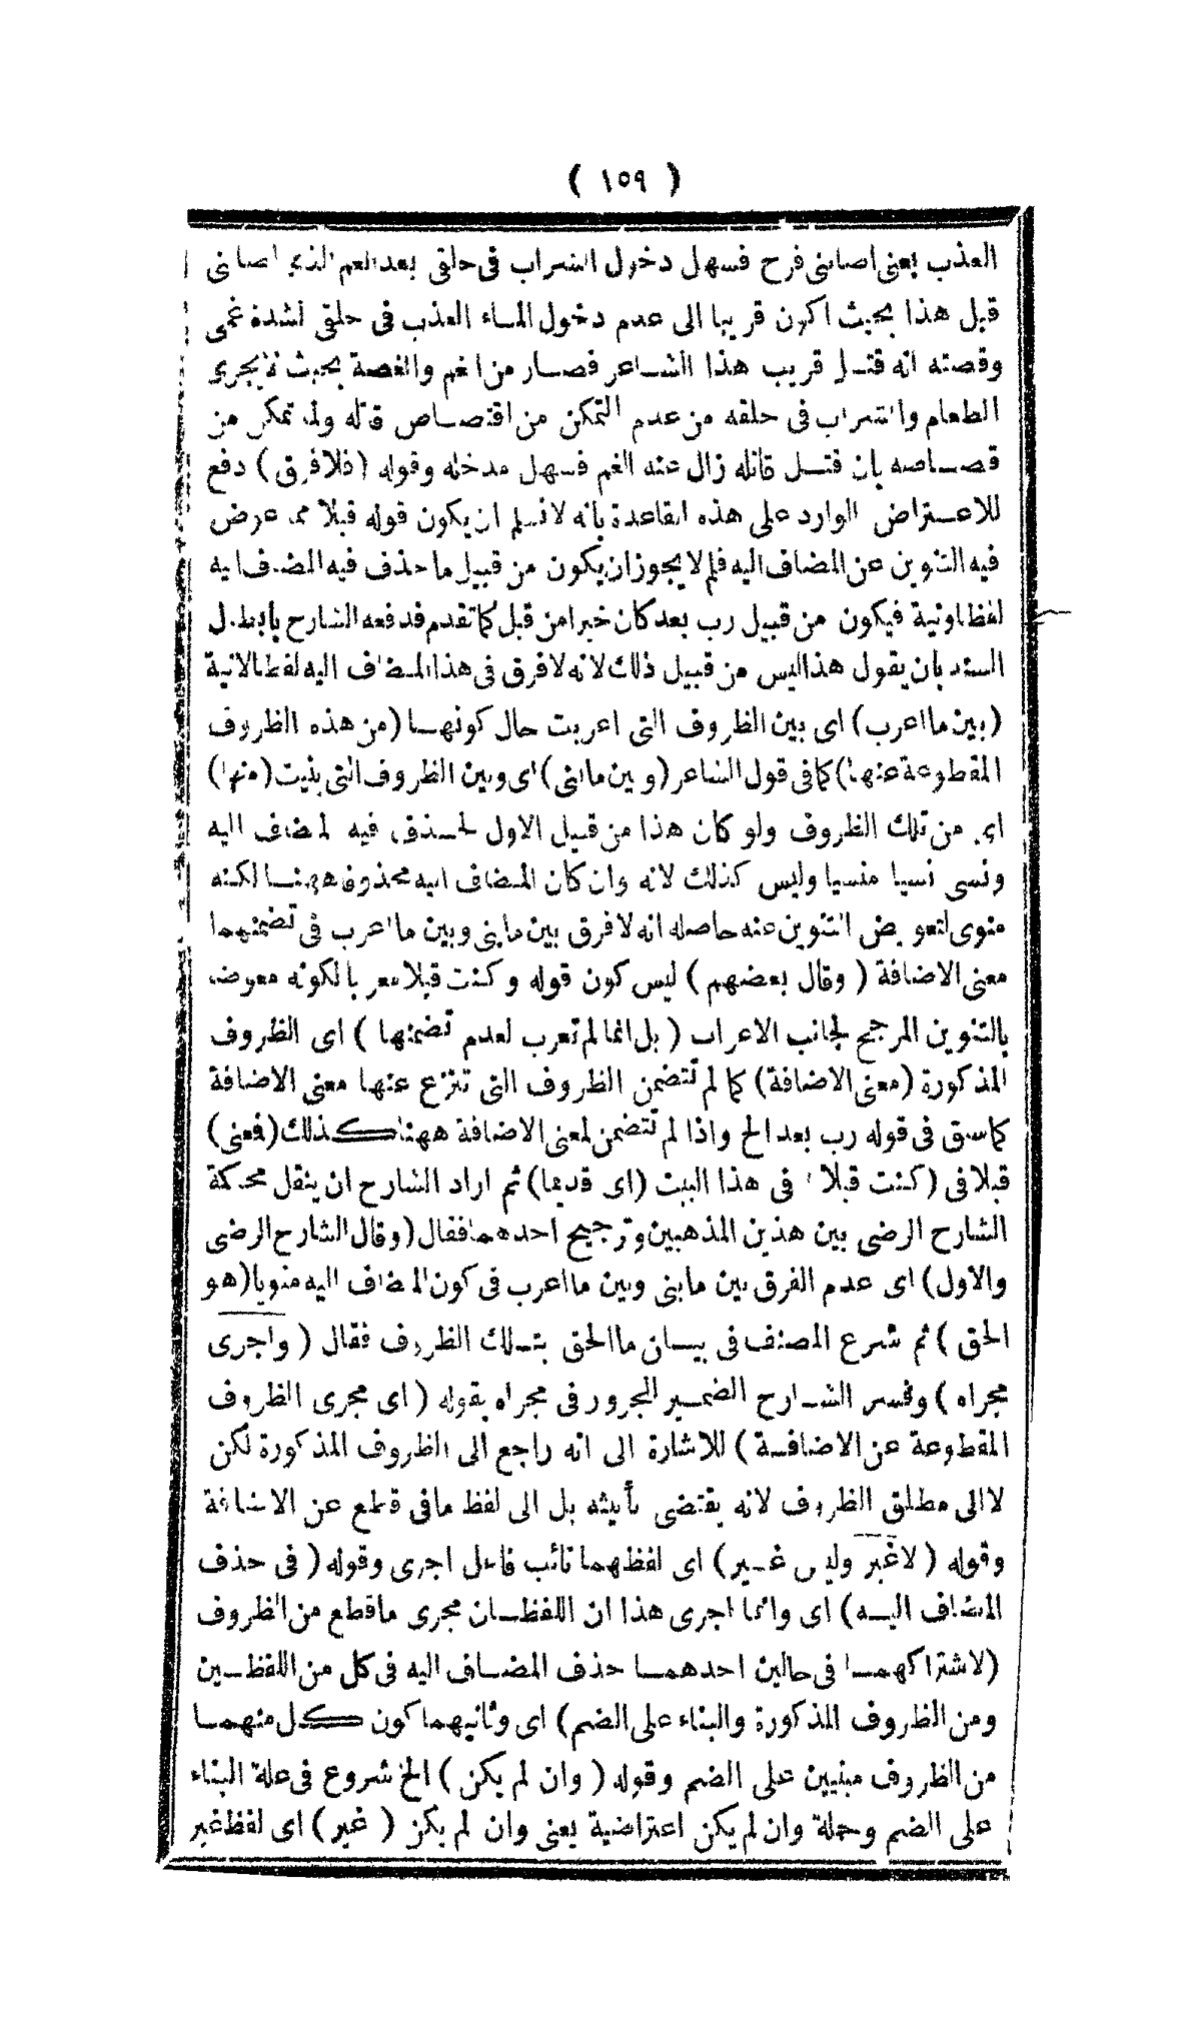 ( ١٥٩ )
العذب يعنى اصابنى فرح فسهل دخول الشراب فى حلقى بعد الغم الذى اصابنى
قبل هذا بحيث اكون قريبا الى عدم دخول الماء العذب فى حلقى لشدة غمى
وقصته انه قتـل قريب هذا الشـاعر فصـار من الغم والغصة بحيث لا يجرى
الطعام والشراب فى حلقه من عدم التمكن من اقتصـاص قاتله ولما تمكن من
قصـاصه بان قتـل قاتله زال عنه الغم فسهل مدخله وقوله (فلا فرق) دفع
للاعـتراض الوارد على هذه القاعدة بانه لا نسلم ان يكون قوله قبلا مما عرض
فيه التنوين عن المضاف اليه فلم لا يجوز ان يكون من قبيل ما حذف فيه المضاف اليه
لفظا ونية فيكون من قبيل رب بعد كان خيرا من قبل كما تقدم فدفعه الشارح بابطال
السند بان يقول هذا ليس من قبيل ذلك لانه لا فرق فى هذا المضاف اليه لفظا لانية
(بين ما اعرب) اى بين الظروف التى اعربت حال كونهـا (من هذه الظروف
المقطوعة عنها) كما فى قول الشاعر (وبين ما بنى) اى وبين الظروف التى بنيت (منها)
اى من تلك الظروف ولو كان هذا من قبيل الاول لحـذف فيه المضاف اليه
ونسى نسيا منسيا وليس كذلك لانه وان كان المضاف اليه محذوفا ههنـا لكنه
منوى لتعويض التنوين عنه حاصله انه لا فرق بين ما بنى وبين ما اعرب فى تضمنهما
معنى الاضافة ( وقال بعضهم ) ليس كون قوله وكنت قبلا معربا لكونه معوضا
بالتنوين المرجح لجانب الاعراب ( بل انما لم تعرب لعدم تضمنها ) اى الظروف
المذكورة (معنى الاضافة) كما لم تتضمن الظروف التى تنزع عنها معنى الاضافة
كما سبق فى قوله رب بعد الخ واذا لم تتضمن لمعنى الاضافة ههنا كذلك (فمعنى)
قبلا فى (كنت قبلا) فى هذا البيت (اى قديما) ثم اراد الشارح ان ينقل محاكمة
الشارح الرضى بين هذين المذهبين وترجيح احدهما فقال (وقال الشارح الرضى
والاول) اى عدم الفرق بين ما بنى وبين ما اعرب فى كون المضاف اليه منويا (هو
الحق ) ثم شرع المصنف فى بيـان ما الحق بتـلك الظروف فقال ( واجرى
مجراه ) وفسر الشـارح الضمـير المجرور فى مجراه بقوله ( اى مجرى الظروف
المقطوعة عن الاضافـة ) للاشارة الى انه راجع الى الظروف المذكورة لكن
لا الى مطلق الظروف لانه يقتضى تأنيثه بل الى لفظ ما فى قطع عن الاضافة
وقوله ( لا غير وليس غـير) اى لفظهما نائب فاعل اجرى وقوله ( فى حذف
المضاف اليـه) اى وانما اجرى هذا ان اللفظـان مجرى ما قطع من الظروف
(لاشتراكهمـا فى حالين احدهمـا حذف المضـاف اليه فى كل من اللفظـين
ومن الظروف المذكورة والبناء على الضم) اى وثانيهما كون كل منهمـا
من الظروف مبنيين على الضم وقوله ( وان لم يكن ) الخ شروع فى علة البناء
على الضم وجملة وان لم يكن اعتراضية يعنى وان لم يكن ( غير ) اى لفظ غير